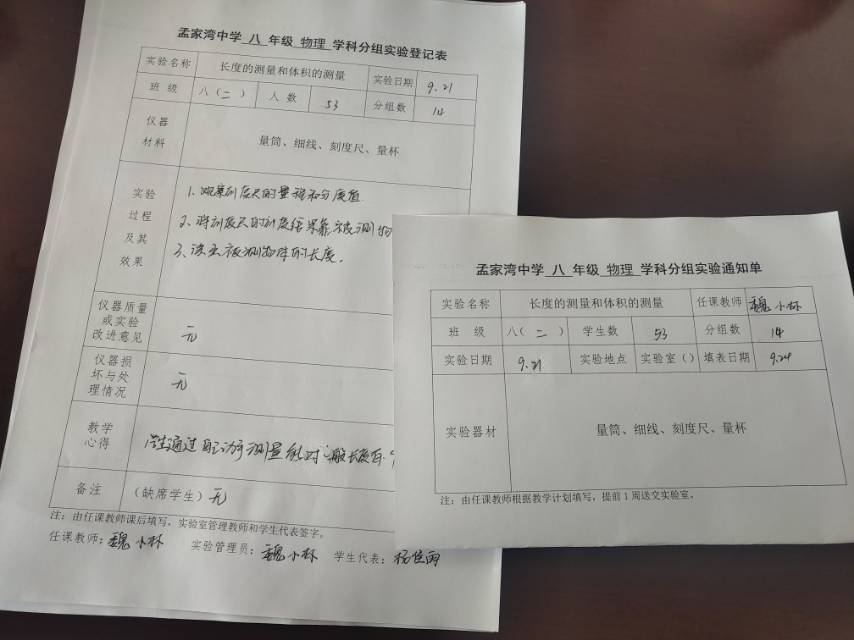 孟家湾中学 八 年级 物理 学科分组实验登记表
实验名称 长度的测量和体积的测量 实验日期 9.21
班 级 八（二） 人 数 53 分组数 14
仪器
材料
量筒、细线、刻度尺、量杯
实验
过程
及其
效果
1、观察刻度尺的量程和分度值
2、将刻度尺的刻度线紧靠被测物
3、读出被测物体的长度.
仪器质量
或实验
改进意见
无
仪器损
坏与处
理情况
无
教学
心得
学生通过自己动手测量能对一般长度
备注 （缺席学生）无
注：由任课教师课后填写，实验室管理教师和学生代表签字。
任课教师：魏小林 实验管理员：魏小林 学生代表：杨佳雨
孟家湾中学 八 年级 物理 学科分组实验通知单
实验名称 长度的测量和体积的测量 任课教师 魏小林
班 级 八（二） 学生数 53 分组数 14
实验日期 9.21 实验地点 实验室（） 填表日期 9.24
实验器材 量筒、细线、刻度尺、量杯
注：由任课教师根据教学计划填写，提前1周送交实验室。